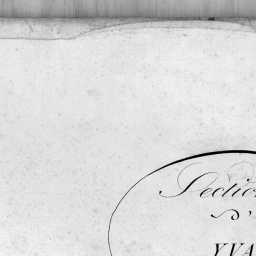 Section
YVA